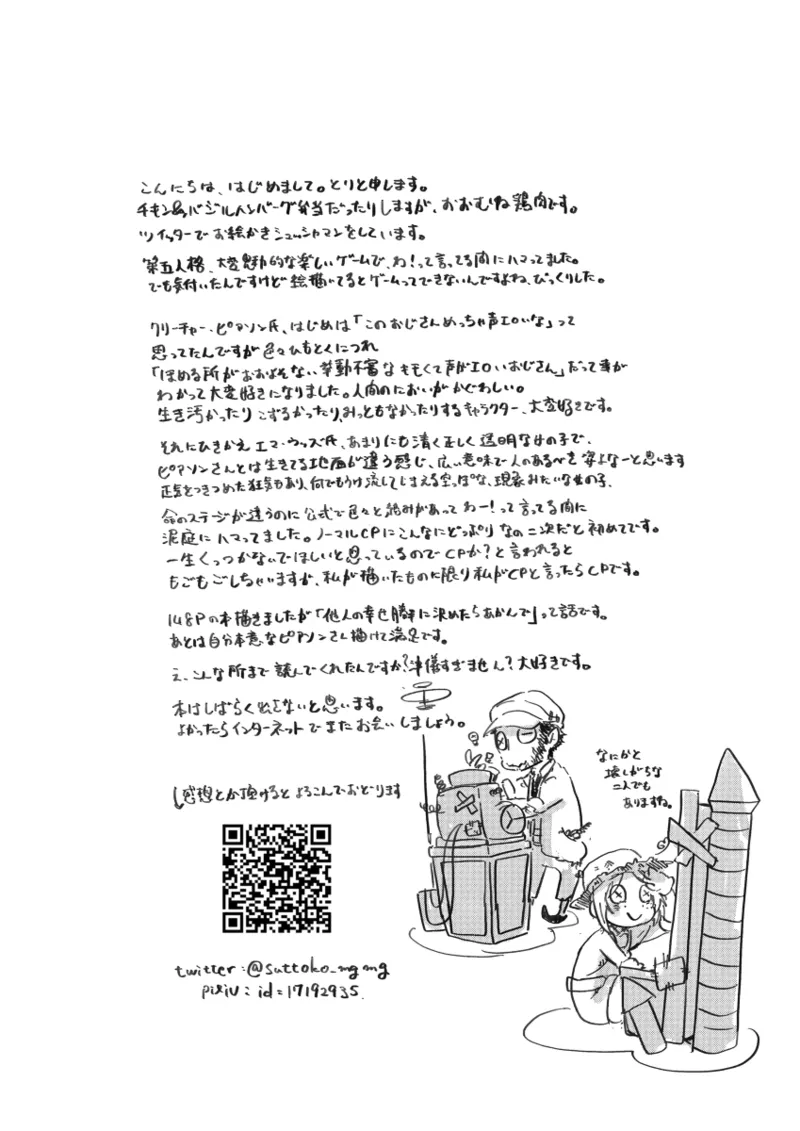 こんにちは、はじめまして。とりと申します。
チキン&バジルハンバーグ弁当だったりしますが、おおむね鶏肉です。
ツイッターでお絵かきシュッシャマンをしています。
第五人格、大変魅力的な楽しいゲームで、わ!って言ってる間にハマってました。
でも気付いたんですけど絵描いてるとゲームってできないんですよね、びっくりした。
クリーチャー・ピアソン氏、はじめは「このおじさんめっちゃ声エロいな」って
思ってたんですが色々ひもとくにつれ
「ほめる所がおおよそない挙動不審なキモくて声がエロいおじさん」だって事が
わかって大変好きになりました。人間のにおいがかぐわしい。
生き汚かったりこずるかったり、みっともなかったりするキャラクター、大変好きです。
それにひきかえエマ・ウッズ氏、あまりにも清く正しく透明な女の子で、
ピアソンさんとは生きてる地面が違う感じ、広い意味で人のあるべき姿よなーと思います
正気をつきつめた狂気もあり、何でもうけ流してしまえる空っぽな、現象みたいな女の子、
命のステージが違うのに公式で色々と絡みがあってわー!って言ってる間に
泥庭にハマってました。ノーマルCPにこんなにどっぷりなの二次だと初めてです。
一生くっつかないでほしいと思っているのでCPか?と言われると
もごもごしちゃいますが、私が描いたものに限り私がCPと言ったらCPです。
14&Pの本描きましたが「他人の幸せ勝手に決めたらあかんで」って話です。
あとは自分本意なピアソンさん描けて満足です。
え、こんな所まで読んでくれたんですか?律儀すぎません?大好きです。
本はしばらく出さないと思います。
よかったらインターネットでまたお会いしましょう。
なにかと
壊しがちな
二人でも
ありますね。
感想とか頂けるとよろこんでおどります
twitter:@suttoko_mgmg
pixiv:id=17192935